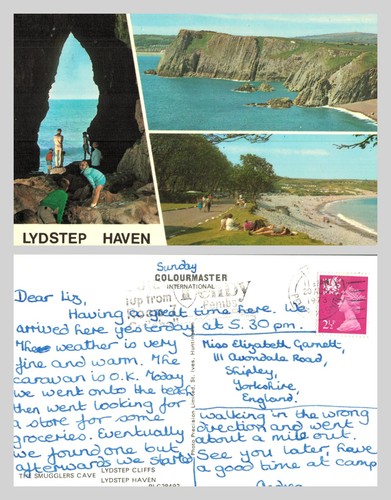 LYDSTEP HAVEN
Sunday
COLOURMASTER
INTERNATIONAL
Dear Liz,
Having a great time here. We
arrived here yesterday at 5.30 pm.
The weather is very
fine and warm. The
caravan is O.K. Today
we went onto the beach
then went looking for
a store for some
groceries. Eventually
we found one but
afterwards we started
Up from
Pembs
2½
Miss Elizabeth Garnett,
111 Avondale Road,
Shipley,
Yorkshire,
England.
walking in the wrong
direction and went
about a mile out.
See you later, have
a good time at camp
Photo Precision Limited, St. Ives,
THE SMUGGLERS CAVE
LYDSTEP CLIFFS
LYDSTEP HAVEN